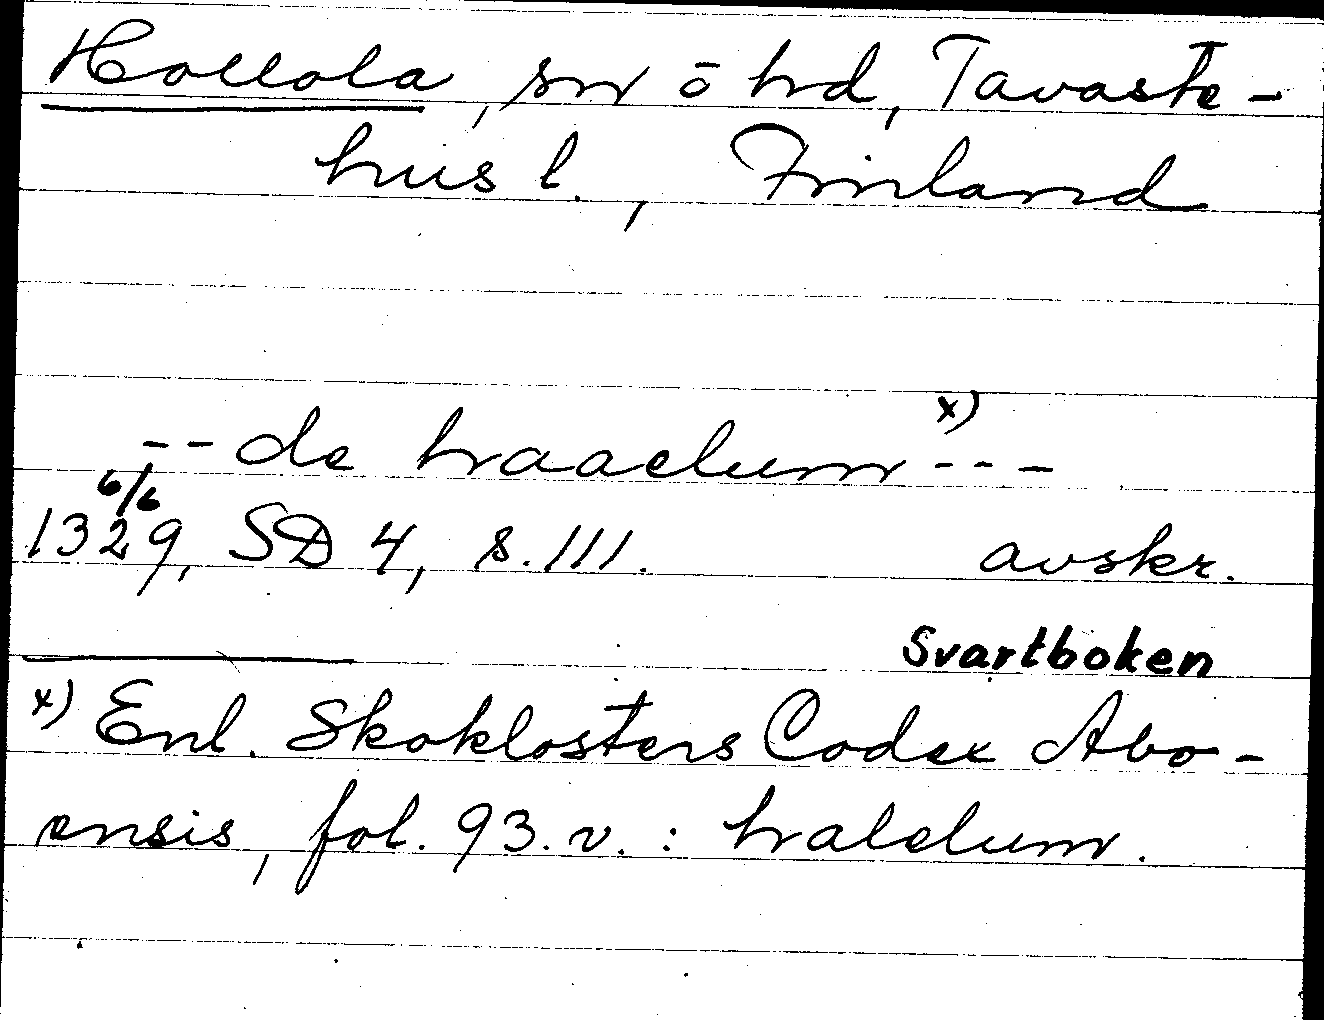 Hollola, sn ō hd, Tavaste-
hus l., Finland
-- de haaelum x) ---
6/6
1329, SD 4, s. 111. avskr.
Svartboken
x) Enl. Skoklosters Codex Abo-
ensis, fol. 93. v. : halelum.